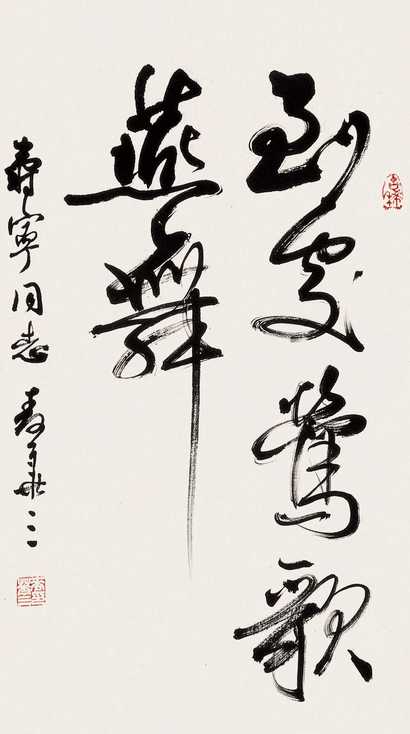 到处莺歌
燕舞
寿宁同志